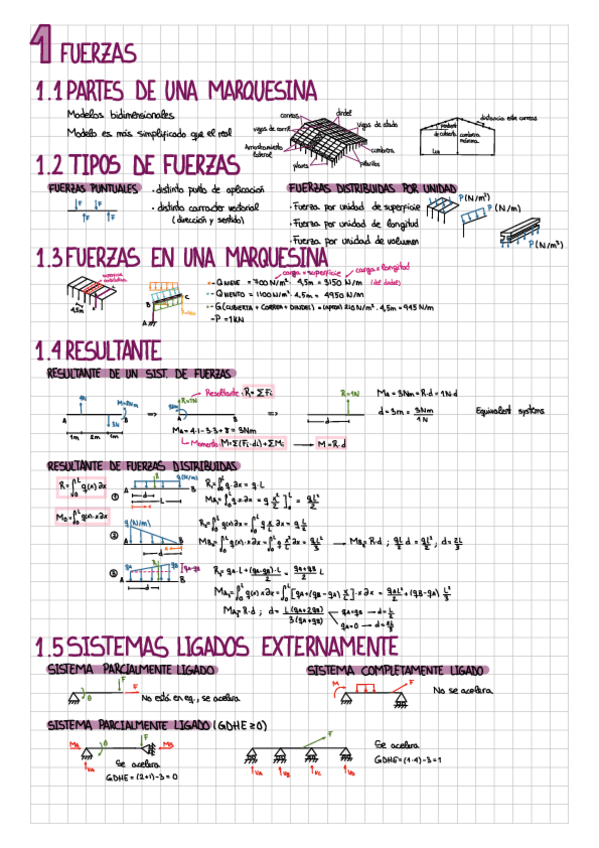 1 FUERZAS
1.1 PARTES DE UNA MARQUESINA
Modelos bidimensionales
Modelo es más simplificado que el real
correas
dindel
vigas de atado
vigas de carril
Arriostramiento lateral
cumbrera
pilares
pilarillos
distancia entre correas
pendiente de cubierta
cumbrera máxima
Luz
1.2 TIPOS DE FUERZAS
FUERZAS PUNTUALES
· distinto punto de aplicación
· distinto carracter vectorial
(dirección y sentido)
F F
F F
FUERZAS DISTRIBUIDAS POR UNIDAD
· Fuerza por unidad de superficie
· Fuerza por unidad de longitud
· Fuerza por unidad de volumen
P (N/m²)
P (N/m)
P (N/m³)
1.3 FUERZAS EN UNA MARQUESINA
4,5m
A
B
C
carga × superficie
carga × longitud
(del dindel)
Q NIEVE = 700 N/m² · 4,5m = 3150 N/m
Q VIENTO = 1100 N/m² · 4,5m = 4950 N/m
G (CUBIERTA + CORREA + DINDEL) = (aprox) 210 N/m² · 4,5m = 945 N/m
P = 1KN
1.4 RESULTANTE
RESULTANTE DE UN SIST. DE FUERZAS
4N
M=8Nm
A
B
3N
1m 2m 1m
=>
R=1N
3Nm
A
B
Resultante: R = ΣFi
MA = 4·1-3·3+8 = 3Nm
Momento: M = Σ(Fi·di) + ΣMi → M = R·d
=>
R=1N
A
B
d
MA = 3Nm = R·d = 1N·d
d = 3m = 3Nm / 1N
Equivalent systems
RESULTANTE DE FUERZAS DISTRIBUIDAS
R = ∫₀ᴸ q(x) ∂x
M₀ = ∫₀ᴸ q(x)·x∂x
①
q (N/m)
A
B
d
L
R₁ = ∫₀ᴸ q·∂x = q·L
MA₁ = ∫₀ᴸ q·x ∂x = q x²/2 ]₀ᴸ = qL²/2
②
q (N/m)
A
B
d
x
R₂ = ∫₀ᴸ q(x)∂x = ∫₀ᴸ q x/L ∂x = q L/2
MB₂ = ∫₀ᴸ q(x)·x∂x = ∫₀ᴸ q x²/L ∂x = qL²/3 → MB₂ = R·d ; qL/2 d = qL²/3 ; d = 2L/3
③
qA
qB
qA-qB
A
B
d
L
R₃ = qA·L + (qB-qA)·L/2 = qA+qB/2 L
MA₃ = ∫₀ᴸ q(x)·x∂x = ∫₀ᴸ [qA + (qB-qA) x/L]·x ∂x = qAL²/2 + (qB-qA) L²/3
MA₃ = R·d ; d = L(qA+2qB)/3(qA+qB)
qA=qB → d = L/2
qA=0 → d = 2L/3
1.5 SISTEMAS LIGADOS EXTERNAMENTE
SISTEMA PARCIALMENTE LIGADO
θ
F
F
No está en eq., se acelera
SISTEMA COMPLETAMENTE LIGADO
M
F
No se acelera
SISTEMA PARCIALMENTE LIGADO (GDHE ≥ 0)
θ
F
VA
Se acelera
GDHE = (2+1)-3 = 0
F
VA
VB
VC
VD
Se acelera
GDHE = (1·4)-3 = 1